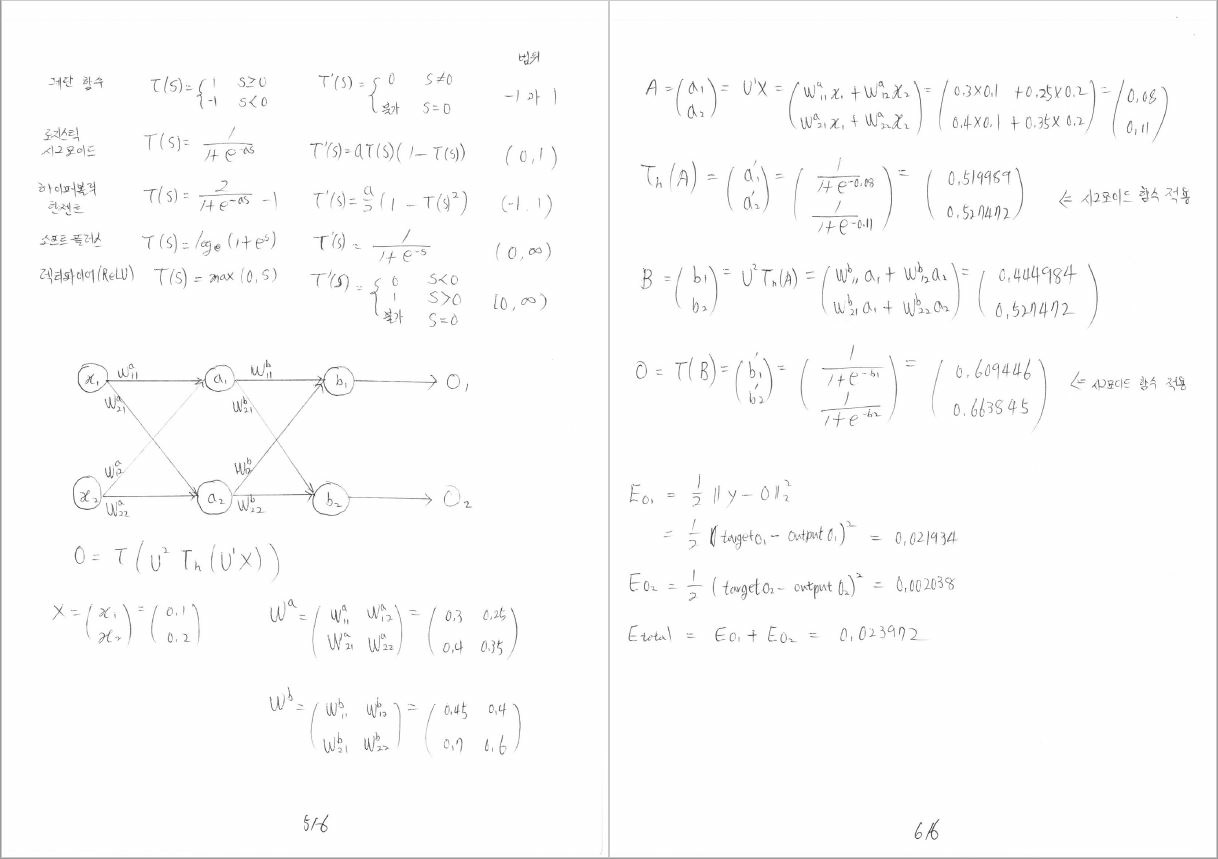 범위
계단 함수 τ(s)= { 1 s≥0 τ'(s)= { 0 s≠0 -1 과 1
-1 s<0 불가 s=0
로지스틱 시그모이드 τ(s)= 1/(1+e^-as) τ'(s)=aτ(s)(1-τ(s)) (0,1)
하이퍼볼릭 탄젠트 τ(s)= 2/(1+e^-as) -1 τ'(s)= a/2 (1-τ(s)²) (-1.1)
소프트 플러스 τ(s)=log_e (1+e^s) τ'(s)= 1/(1+e^-s) (0,∞)
렉티파이어(ReLU) τ(s)= max(0,s) τ'(s)= { 0 s<0 [0,∞)
1 s>0
불가 s=0
x₁ W^a_11 a₁ W^b_11 b₁ O₁
W^a_21 W^b_21
W^a_12 W^b_12
x₂ W^a_22 a₂ W^b_22 b₂ O₂
O= τ(U² τ_h(U¹X))
X=(x₁ x₂)=(0.1 0.2)
W^a=(W^a_11 W^a_12 W^a_21 W^a_22)=(0.3 0.25 0.4 0.35)
W^b=(W^b_11 W^b_12 W^b_21 W^b_22)=(0.45 0.4 0.7 0.6)
5/6
A=(a₁ a₂)=U¹X=(W^a_11 x₁+W^a_12 x₂ W^a_21 x₁+W^a_22 x₂)=(0.3×0.1+0.25×0.2 0.4×0.1+0.35×0.2)=(0.08 0.11)
τ_h(A)=(a₁' a₂')=(1/(1+e^-0.08) 1/(1+e^-0.11))=(0.519989 0.527472) ⇐ 시그모이드 함수 적용
B=(b₁ b₂)=U²τ_h(A)=(W^b_11 a₁+W^b_12 a₂ W^b_21 a₁+W^b_22 a₂)=(0.444984 0.527472)
O=τ(B)=(b₁' b₂')=(1/(1+e^-b₁) 1/(1+e^-b₂))=(0.609446 0.663845) ⇐ 시그모이드 함수 적용
E_O₁ = 1/2 ||y-O||²₂
= 1/2 (target O₁ - output O₁)² = 0.021934
E_O₂ = 1/2 (target O₂ - output O₂)² = 0.002038
Etotal = E_O₁ + E_O₂ = 0.023972
6/6